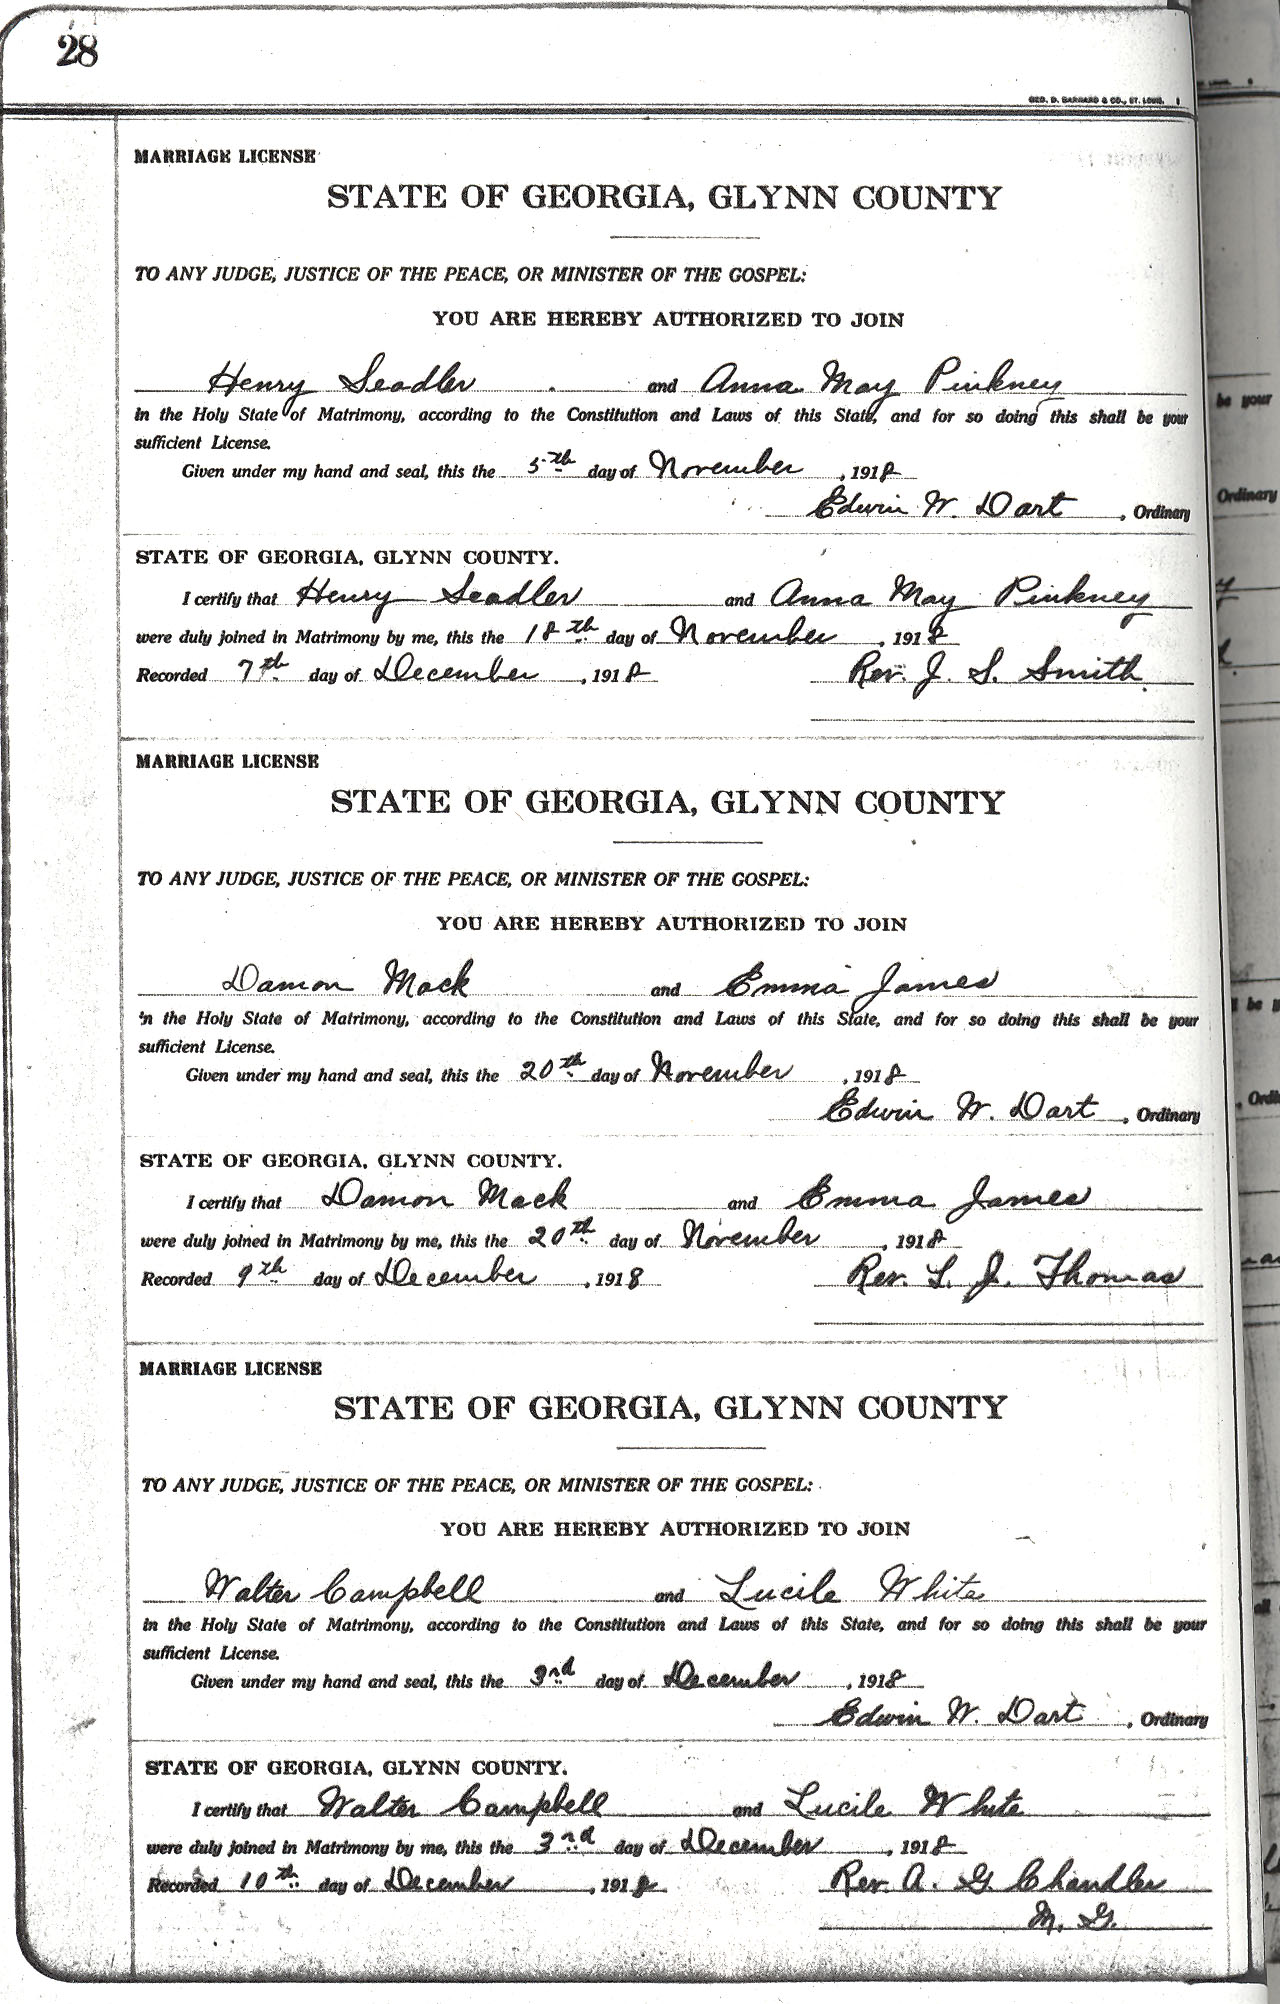 28
GEO. D. BARNARD & CO., ST. LOUIS.
MARRIAGE LICENSE
STATE OF GEORGIA, GLYNN COUNTY
TO ANY JUDGE, JUSTICE OF THE PEACE, OR MINISTER OF THE GOSPEL:
YOU ARE HEREBY AUTHORIZED TO JOIN
Henry Seadler and Anna May Pinkney
in the Holy State of Matrimony, according to the Constitution and Laws of this State, and for so doing this shall be your
sufficient License.
Given under my hand and seal, this the 5th day of November, 1918
Edwin W. Dart, Ordinary
STATE OF GEORGIA, GLYNN COUNTY.
I certify that Henry Seadler and Anna May Pinkney
were duly joined in Matrimony by me, this the 18th day of November, 1918
Recorded 7th day of December, 1918 Rev. J. S. Smith
MARRIAGE LICENSE
STATE OF GEORGIA, GLYNN COUNTY
TO ANY JUDGE, JUSTICE OF THE PEACE, OR MINISTER OF THE GOSPEL:
YOU ARE HEREBY AUTHORIZED TO JOIN
Damon Mack and Emma James
in the Holy State of Matrimony, according to the Constitution and Laws of this State, and for so doing this shall be your
sufficient License.
Given under my hand and seal, this the 20th day of November, 1918
Edwin W. Dart, Ordinary
STATE OF GEORGIA, GLYNN COUNTY.
I certify that Damon Mack and Emma James
were duly joined in Matrimony by me, this the 20th day of November, 1918
Recorded 9th day of December, 1918 Rev. L. J. Thomas
MARRIAGE LICENSE
STATE OF GEORGIA, GLYNN COUNTY
TO ANY JUDGE, JUSTICE OF THE PEACE, OR MINISTER OF THE GOSPEL:
YOU ARE HEREBY AUTHORIZED TO JOIN
Walter Campbell and Lucile White
in the Holy State of Matrimony, according to the Constitution and Laws of this State, and for so doing this shall be your
sufficient License.
Given under my hand and seal, this the 3rd day of December, 1918
Edwin W. Dart, Ordinary
STATE OF GEORGIA, GLYNN COUNTY.
I certify that Walter Campbell and Lucile White
were duly joined in Matrimony by me, this the 3rd day of December, 1918
Recorded 10th day of December, 1918 Rev. A. G. Chandler
M. G.
be your
Ordinary